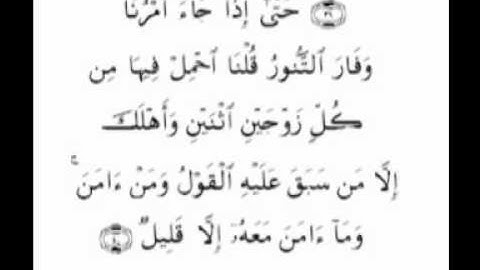 ﴿٣٩﴾ حَتَّىٰٓ إِذَا جَآءَ أَمْرُنَا
وَفَارَ ٱلتَّنُّورُ قُلْنَا ٱحْمِلْ فِيهَا مِن
كُلٍّ زَوْجَيْنِ ٱثْنَيْنِ وَأَهْلَكَ
إِلَّا مَن سَبَقَ عَلَيْهِ ٱلْقَوْلُ وَمَنْ ءَامَنَ ۚ
وَمَآ ءَامَنَ مَعَهُۥٓ إِلَّا قَلِيلٌ ﴿٤٠﴾